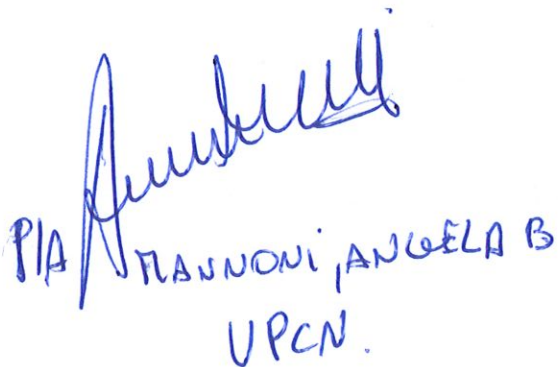 P/A MANNONI, ANGELA B
UPCN.